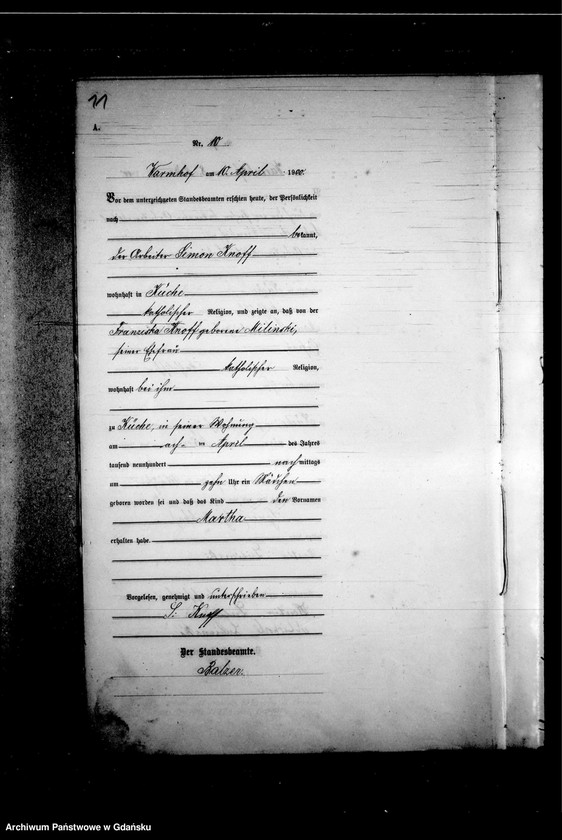 11
A.
Nr. 10
Warmhof am 10. April 1900.
Vor dem unterzeichneten Standesbeamten erschien heute, der Persönlichkeit
nach
bekannt,
der Arbeiter Simon Knoff
wohnhaft in Küche
katholischer Religion, und zeigte an, daß von der
Franziska Knoff geborene Milinski,
seiner Ehefrau
katholischer Religion,
wohnhaft bei ihm
zu Küche, in seiner Wohnung
am acht ten April des Jahres
tausend neunhundert nachmittags
um zehn Uhr ein Mädchen
geboren worden sei und daß das Kind den Vornamen
Martha
erhalten habe.
Vorgelesen, genehmigt und unterschrieben
S. Knoff
Der Standesbeamte.
Balzer.
Archiwum Państwowe w Gdańsku